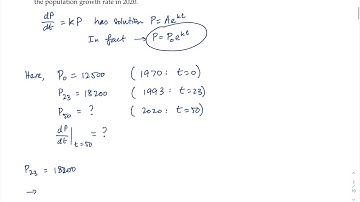 the population growth rate in 2020.
dP/dt = KP has solution P = Ae^{kt}
In fact → P = P₀e^{kt}
Here, P₀ = 12500 (1970: t=0)
P₂₃ = 18200 (1993: t=23)
P₅₀ = ? (2020: t=50)
dP/dt |_{t=50} = ?
P₂₃ = 18200
→